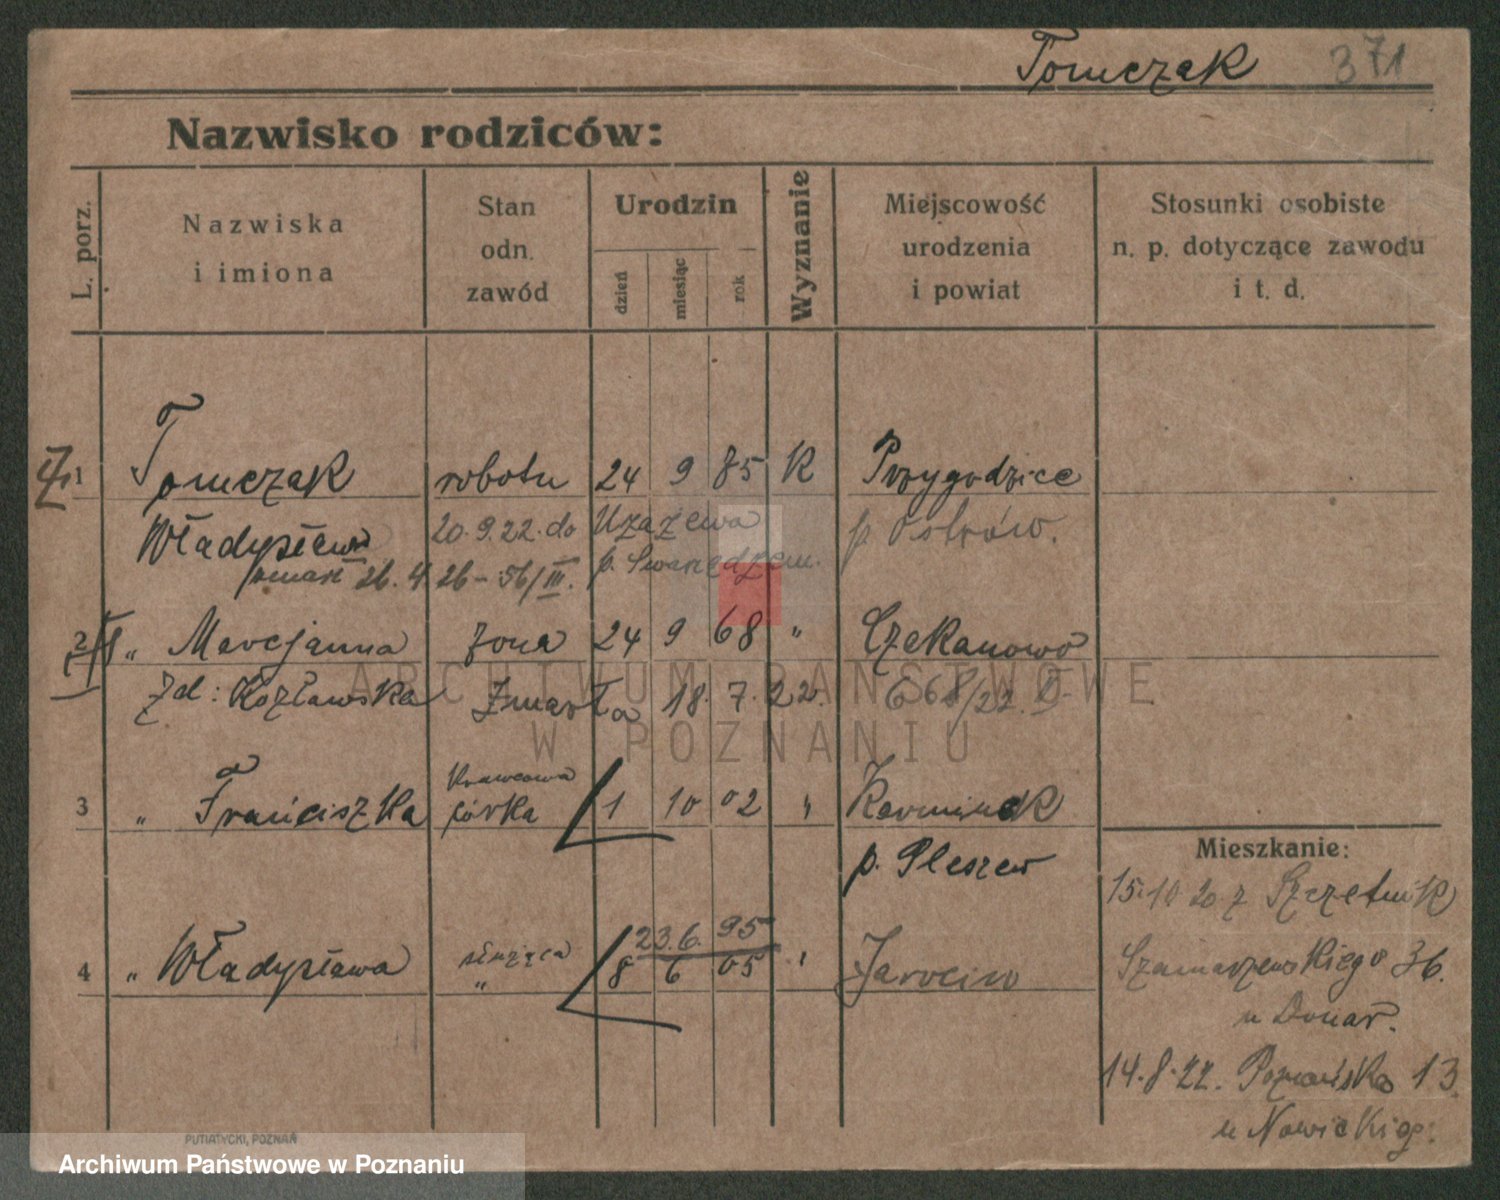 Tomczak 371
Nazwisko rodziców:
L. porz. Nazwiska i imiona Stan odn. zawód Urodzin dzień miesiąc rok Wyznanie Miejscowość urodzenia i powiat Stosunki osobiste n. p. dotyczące zawodu i t. d.
1 Tomczak robotn 24 9 85 K Przygodzice
Władysław 20.9.22. do Uzażewa p Ostrów.
zmarł 26.4.26 - 56/III. p. Swarzędzem.
2 " Marcjanna żona 24 9 68 " Czekanowo
Zd: Kozłowska Zmarła 18.7.22. 668/22. II
Krawcowa
3 " Franciszka córka 1 10 02 " Karminek
p. Pleszew
Mieszkanie:
15.10 20 z Szczetnik
23.6. 95
4 " Władysława służąca " 8 6 05 " Jarocin
Szamarzewskiego 36.
u Donar.
14.8.22. Poznańska 13.
u Nowickieg:
PUTIATYCKI, POZNAŃ
ARCHIWUM PAŃSTWOWE
W POZNANIU
Archiwum Państwowe w Poznaniu